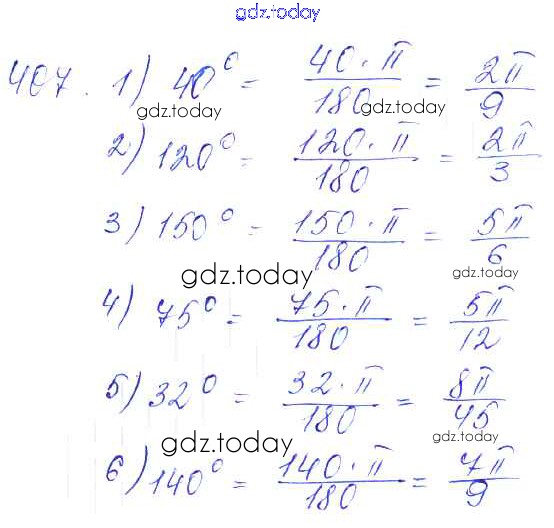 gdz.today
407. 1) 40° = 40·π/180 = 2π/9
gdz.today gdz.today
2) 120° = 120·π/180 = 2π/3
3) 150° = 150·π/180 = 5π/6
gdz.today gdz.today
4) 75° = 75·π/180 = 5π/12
5) 32° = 32·π/180 = 8π/45
gdz.today gdz.today
6) 140° = 140·π/180 = 7π/9